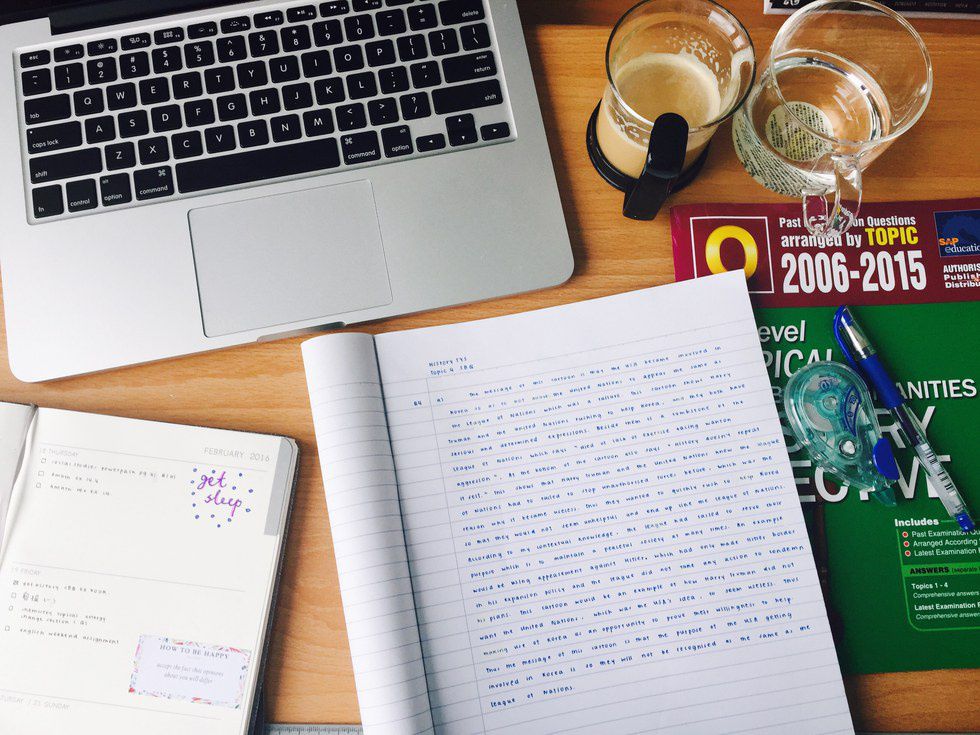 esc
delete
tab
return
caps lock
shift
shift
fn
control
option
command
command
option
Q W E R T Y U I O P
A S D F G H J K L
Z X C V B N M
Questions
arranged by TOPIC
2006-2015
O
SAP
AUTHORIS
Publish
Distribu
evel
PICAL
ANITIES
Includes
Past Examination Qu
Arranged According
Latest Examination
ANSWERS (separate
Topics 1 - 4
Comprehensive answers
Latest Examination
Comprehensive answers
History TYS
Topic 4 SBQ
a) The message of this cartoon is that the USA became involved in
Korea so as to not allow the United Nations to appear the same as
the League of Nations which was a failure. This cartoon shows Harry
Truman and the United Nations rushing to help Korea, and they both have
serious and determined expressions. Beside them is a tombstone of the
League of Nations which says "died of lack of exercise facing wanton
aggression". At the bottom of the cartoon also says "History doesn't repeat
itself." This shows that Harry Truman and the United Nations knew the League
of Nations had to failed to stop unauthorised forces before, which was the
reason why it became useless. Thus they wanted to quickly rush to help Korea
so that they would not seem unhelpful and end up like the League of Nations.
According to my contextual knowledge, the League had failed to serve their
purpose which is to maintain a peaceful society at many times. An example
would be using appeasement against Hitler, which had only made Hitler bolder
in his expansion policy and the League did not take any action to condemn
his plans. This cartoon would be an example of how Harry Truman did not
want the United Nations, which was the USA's idea, to seem useless, thus
making use of Korea as an opportunity to prove their willingness to help.
Thus the message of this cartoon is that the purpose of the USA getting
involved in Korea is so they will not be recognised as the same as the
League of Nations.
18 THURSDAY
FEBRUARY 2016
get
sleep
19 FRIDAY
chemistry topical: energy
change section
english weekend assignment
HOW TO BE HAPPY
accept the fact that opinions
about you will differ
21 SUNDAY